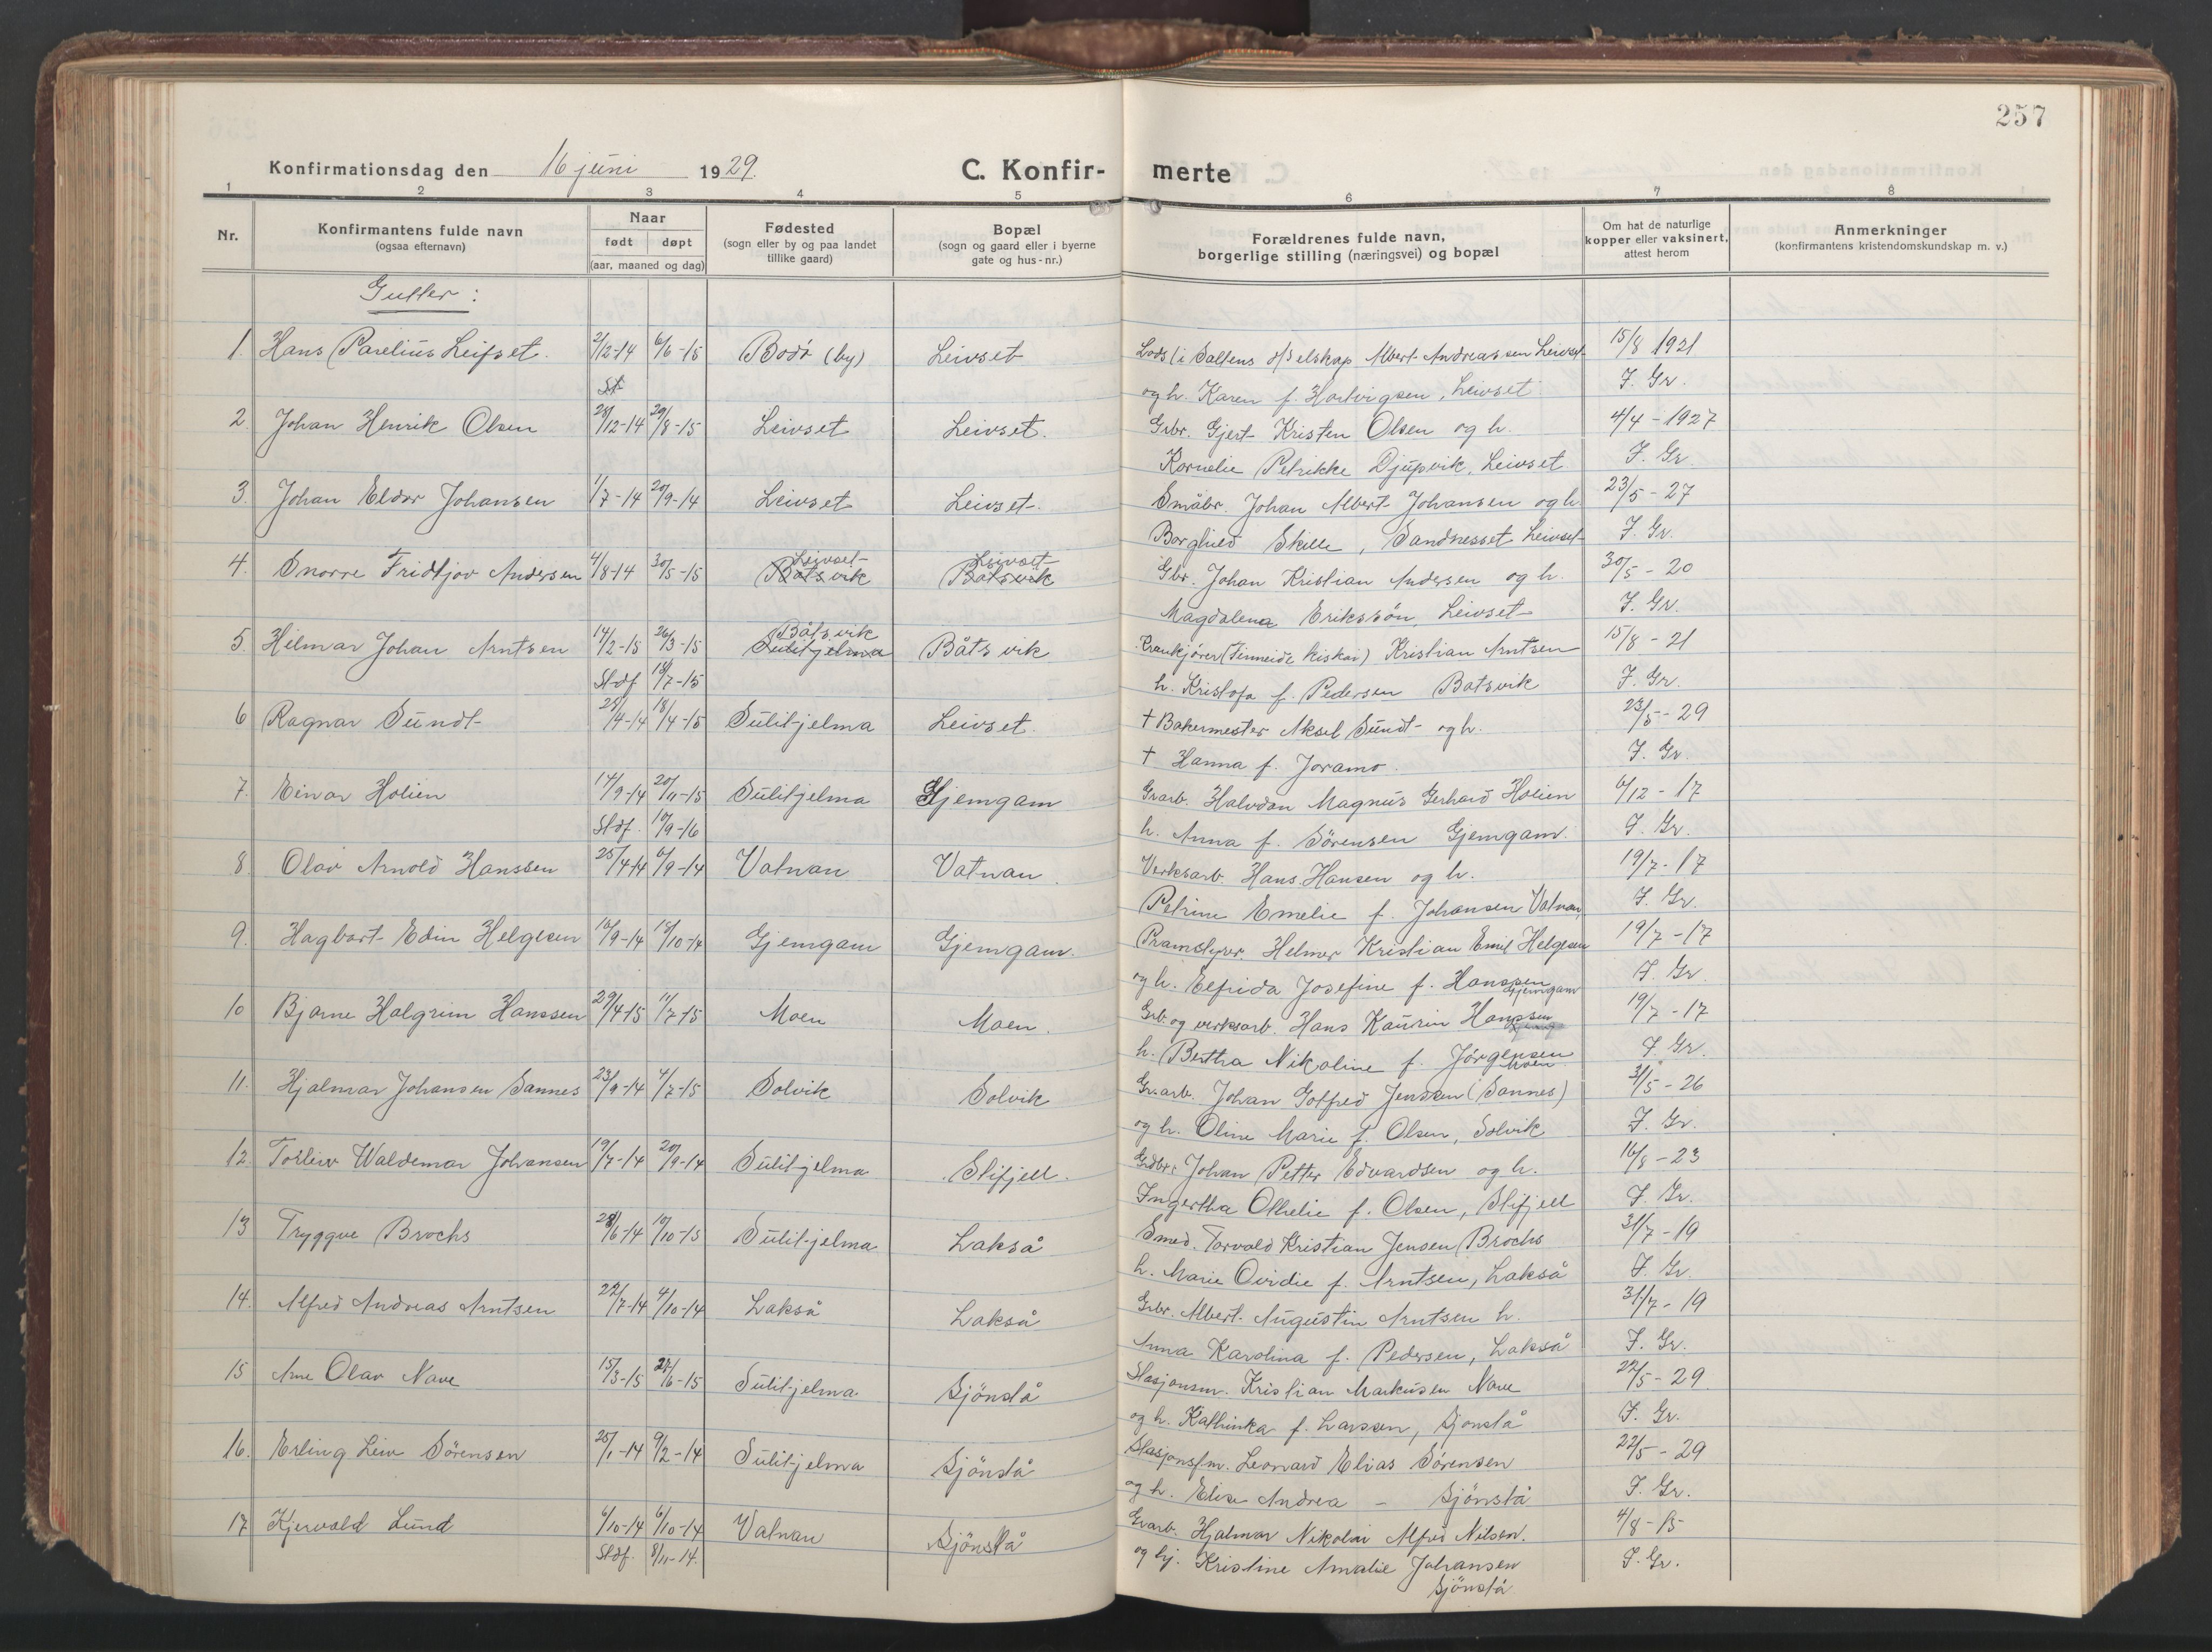 257
Konfirmationsdag den 16 juni 1929. C. Konfir- merte
1 2 3 4 5 6 7 8
Nr.
Konfirmantens fulde navn
(ogsaa efternavn)
Naar
født døpt
(aar, maaned og dag)
Fødested
(sogn eller by og paa landet
tillike gaard)
Bopæl
(sogn og gaard eller i byerne
gate og hus-nr.)
Forældrenes fulde navn,
borgerlige stilling (næringsvei) og bopæl
Om hat de naturlige
kopper eller vaksinert,
attest herom
Anmerkninger
(konfirmantens kristendomskundskap m. v.)
Gutter:
1. Hans Parelius Leifset. 2/12-14 6/6-15 Bodö (by) Leivset Lods (i Saltens d/selskap Albert Andreassen Leivset 15/8 1921
St og h. Karen f. Hartvigsen, Leivset J. Gr.
2. Johan Henrik Olsen 28/12-14 29/8-15 Leivset Leivset. Grbr. Gjert Kristen Olsen og h. 4/4-1927
Kornelie Petrikke Djupvik, Leivset J. Gr.
3. Johan Eldor Johansen 1/7-14 20/9-14 Leivset Leivset. Småbr. Johan Albert Johansen og h. 23/5-27
Borghild Skille, Sandnesset Leivset J. Gr.
4. Snorre Fridtjov Andersen 4/8-14 30/5-15 Leivset Båtsvik Leivset Båtsvik Gbr. Johan Kristian Andersen og h. 30/5-20
Magdalena Erikssön, Leivset J. Gr.
5. Hilmar Johan Arntsen 14/2-15 26/3-15 Båtsvik Sulitjelma Båtsvik Krankjörer (Finneide kiskai) Kristian Arntsen 15/8-21
Stdf 18/7-15 h. Kristofa f. Pedersen Båtsvik J. Gr.
6 Ragnar Sundt 25/4-14 18/4-15 Sulitjelma Leivset. † Bakermester Aksel Sundt og h. 23/5-29
† Hanna f. Joramo. J. Gr.
7. Einar Holien 14/9-14 20/11-15 Sulitjelma Gjemgam Grarb. Halvdan Magnus Gerhard Holien 6/12-17
Stdf. 10/9-16 h. Anna f. Sörensen Gjemgam. J. Gr.
8 Olav Arnold Hanssen 25/4-14 6/9-14 Vatnan Vatnan Verksarb. Hans Hansen og h. 19/7-17
Petrine Emelie f. Johansen Vatnan J. Gr.
9. Hagbart Edin Helgesen 16/9-14 18/10-14 Gjemgam Gjemgam. Pramstyrer Helmer Kristian Emil Helgesen 19/7-17
og h. Elfrida Josefine f. Hanssen Gjemgam J. Gr.
10 Bjarne Halgrim Hanssen 29/4-15 11/7-15 Moen Moen. Grb. og verksarb. Hans Kaurin Hanssen 19/7-17
h. Bertha Nikoline f. Jörgensen J. Gr.
11. Hjalmar Johansen Sannes 23/9-14 4/7-15 Solvik Solvik Gr.arb. Johan Gotfred Jenssen (Sannes) 31/5-26
og h. Oline Marie f. Olsen, Solvik J. Gr.
12. Torleiv Waldemar Johansen 19/7-14 20/9-14 Sulitjelma Stifjell. Grdbr. Johan Petter Edvardsen og h. 16/8-23
Ingertha Othelie f. Olsen, Stifjell J. Gr.
13 Tryggve Brochs 28/6-14 10/10-15 Sulitjelma Lakså Smed. Torvald Kristian Jensen Brochs 31/7-19
h. Marie Ovidie f. Arntsen, Lakså J. Gr.
14. Alfred Andreas Arntsen 22/7-14 4/10-14 Lakså Lakså Grbr. Albert Augustin Arntsen h. 31/7-19
Anna Karolina f. Pedersen, Lakså J. Gr.
15 Arne Olav Nave 15/3-15 27/6-15 Sulitjelma Sjönstå Stasjonsm. Kristian Markusen Nave 22/5-29
og h. Kathinka f. Larssen, Sjönstå J. Gr.
16. Erling Leiv Sörensen 25/1-14 9/2-14 Sulitjelma Sjönstå Stasjonsfm. Leonard Elias Sörensen 22/5-29
og h. Elise Andrea - Sjönstå J. Gr.
17 Kjervald Lund 6/10-14 6/10-14 Vatnan Sjönstå Grarb. Hjalmar Nikolai Alfred Nilsen. 4/8-15
Stdf. 8/11-14. og hj. Kristine Amalie Johansen J. Gr.
Sjönstå